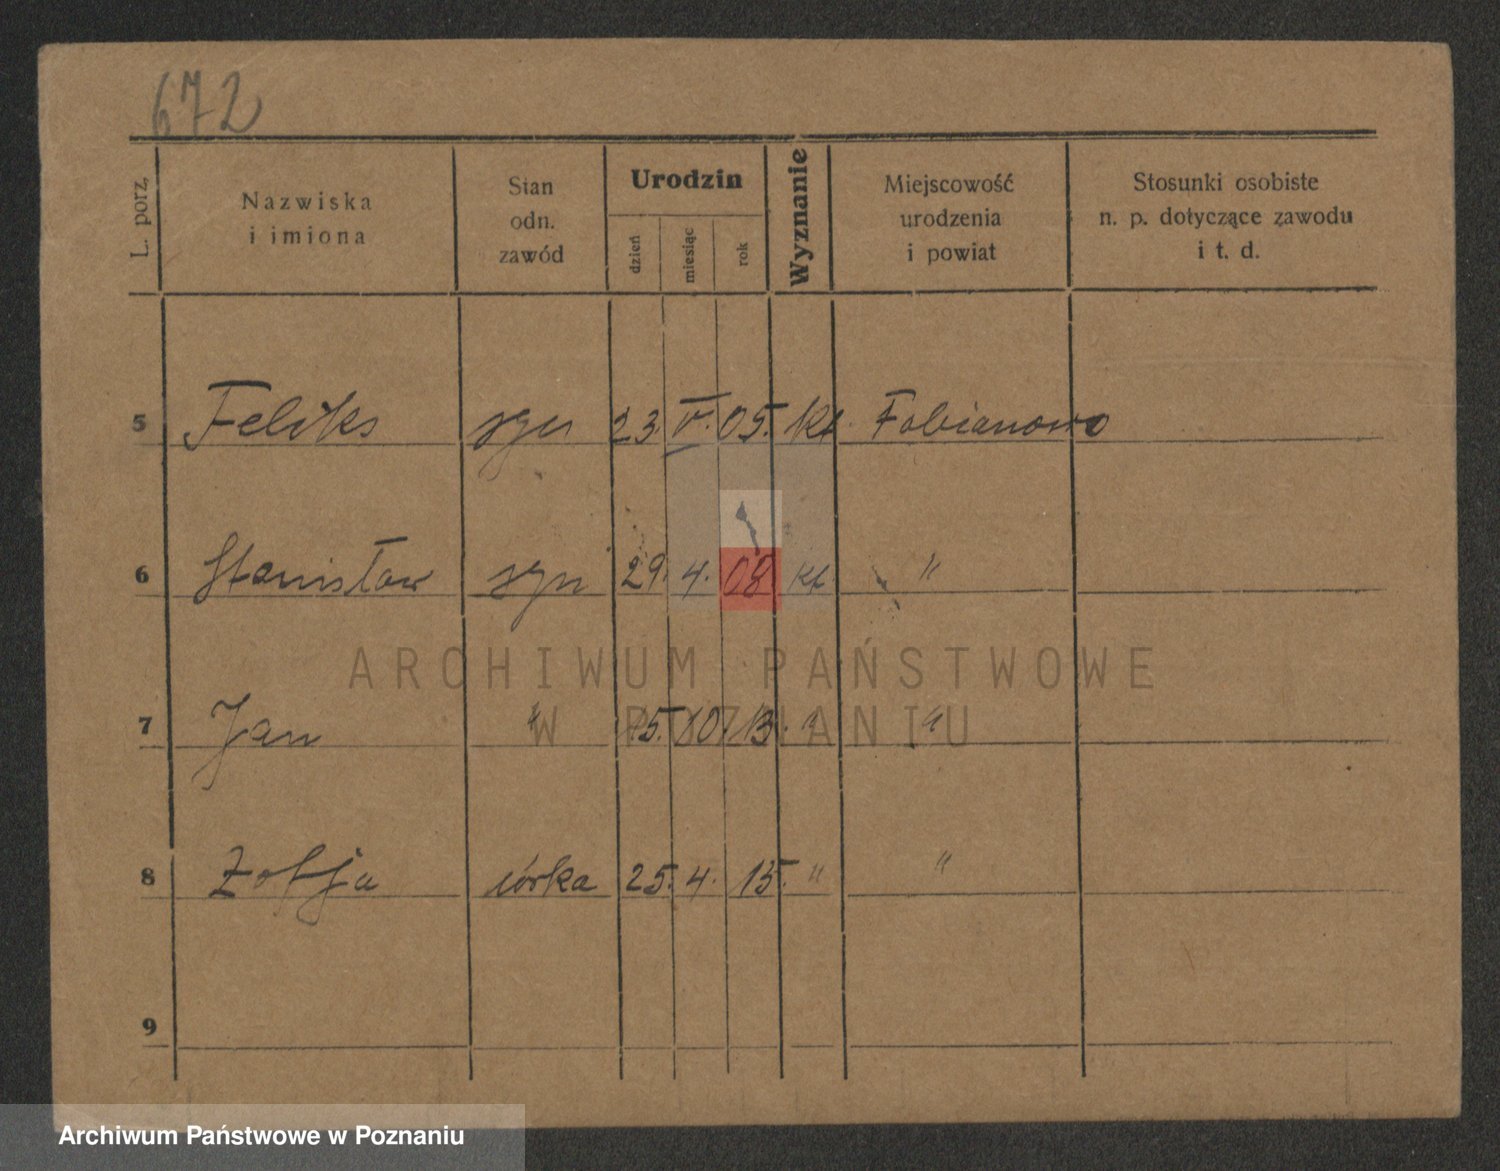 672
L. porz.
Nazwiska
i imiona
Stan
odn.
zawód
Urodzin
dzień
miesiąc
rok
Wyznanie
Miejscowość
urodzenia
i powiat
Stosunki osobiste
n. p. dotyczące zawodu
i t. d.
5 Feliks syn 23. V. 05. kt. Fabianowo
6 Stanisław syn 29. 4. 08 kt. "
7 Jan " 15. 10. 13. " "
8 Zofja córka 25. 4. 15. " "
9
ARCHIWUM PAŃSTWOWE
W POZNANIU
Archiwum Państwowe w Poznaniu